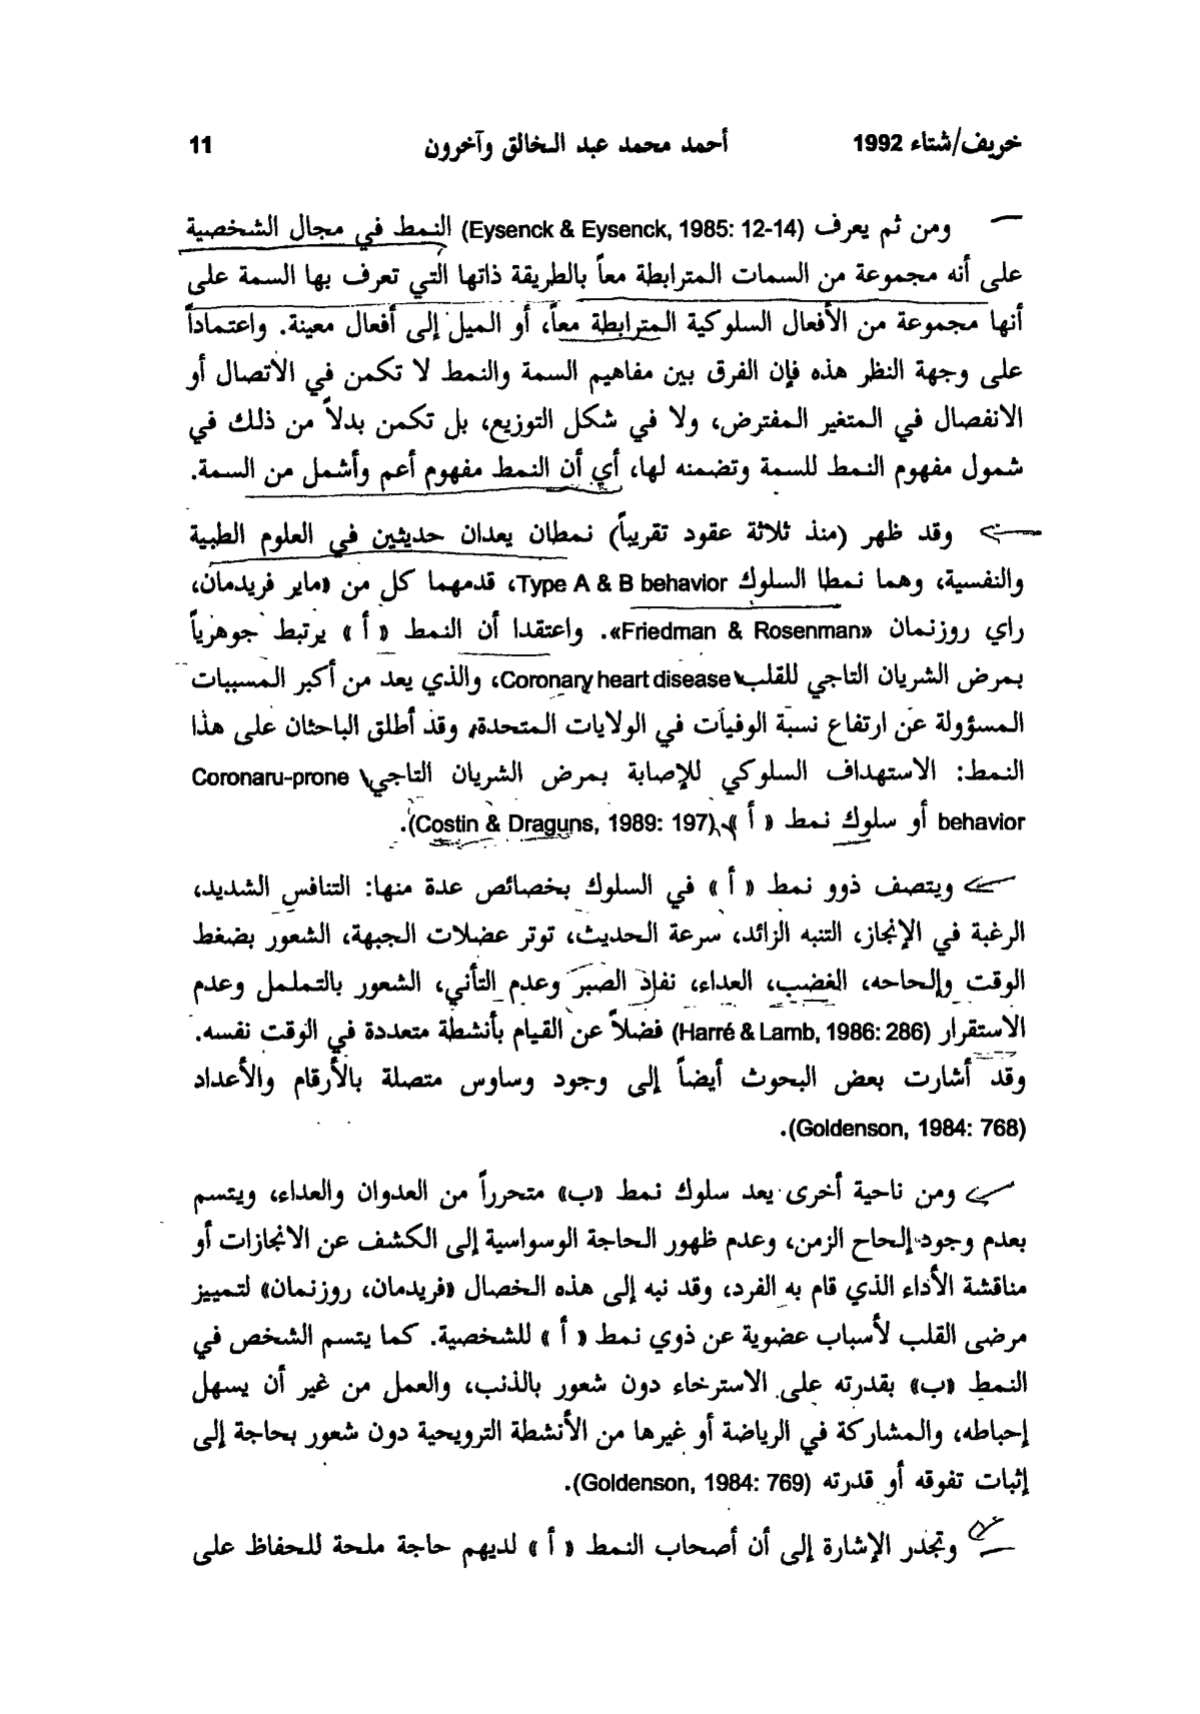 خريف/شتاء 1992 أحمد محمد عبد الخالق وآخرون 11
ومن ثم يعرف (Eysenck & Eysenck, 1985: 12-14) النمط في مجال الشخصية
على أنه مجموعة من السمات المترابطة معاً بالطريقة ذاتها التي تعرف بها السمة على
أنها مجموعة من الأفعال السلوكية المترابطة معاً، أو الميل إلى أفعال معينة. واعتماداً
على وجهة النظر هذه فإن الفرق بين مفاهيم السمة والنمط لا تكمن في الاتصال أو
الانفصال في المتغير المفترض، ولا في شكل التوزيع، بل تكمن بدلاً من ذلك في
شمول مفهوم النمط للسمة وتضمنه لها، أي أن النمط مفهوم أعم وأشمل من السمة.
وقد ظهر (منذ ثلاثة عقود تقريباً) نمطان يعدان حديثين في العلوم الطبية
والنفسية، وهما نمطا السلوك Type A & B behavior، قدمهما كل من «ماير فريدمان،
راي روزنمان Friedman & Rosenman». واعتقدا أن النمط « أ » يرتبط جوهرياً
بمرض الشريان التاجي للقلب Coronary heart disease، والذي يعد من أكبر المسببات
المسؤولة عن ارتفاع نسبة الوفيات في الولايات المتحدة، وقد أطلق الباحثان على هذا
النمط: الاستهداف السلوكي للإصابة بمرض الشريان التاجي\ Coronaru-prone
behavior أو سلوك نمط « أ » (Costin & Draguns, 1989: 197).
ويتصف ذوو نمط « أ » في السلوك بخصائص عدة منها: التنافس الشديد،
الرغبة في الإنجاز، التنبه الزائد، سرعة الحديث، توتر عضلات الجبهة، الشعور بضغط
الوقت وإلحاحه، الغضب، العداء، نفاذ الصبر وعدم التأني، الشعور بالتململ وعدم
الاستقرار (Harré & Lamb, 1986: 286) فضلاً عن القيام بأنشطة متعددة في الوقت نفسه.
وقد أشارت بعض البحوث أيضاً إلى وجود وساوس متصلة بالأرقام والأعداد
(Goldenson, 1984: 768).
ومن ناحية أخرى يعد سلوك نمط «ب» متحرراً من العدوان والعداء، ويتسم
بعدم وجود إلحاح الزمن، وعدم ظهور الحاجة الوسواسية إلى الكشف عن الانجازات أو
مناقشة الأداء الذي قام به الفرد، وقد نبه إلى هذه الخصال «فريدمان، روزنمان» لتمييز
مرضى القلب لأسباب عضوية عن ذوي نمط « أ » للشخصية. كما يتسم الشخص في
النمط «ب» بقدرته على الاسترخاء دون شعور بالذنب، والعمل من غير أن يسهل
إحباطه، والمشاركة في الرياضة أو غيرها من الأنشطة الترويحية دون شعور بحاجة إلى
إثبات تفوقه أو قدرته (Goldenson, 1984: 769).
وتجدر الإشارة إلى أن أصحاب النمط « أ » لديهم حاجة ملحة للحفاظ على